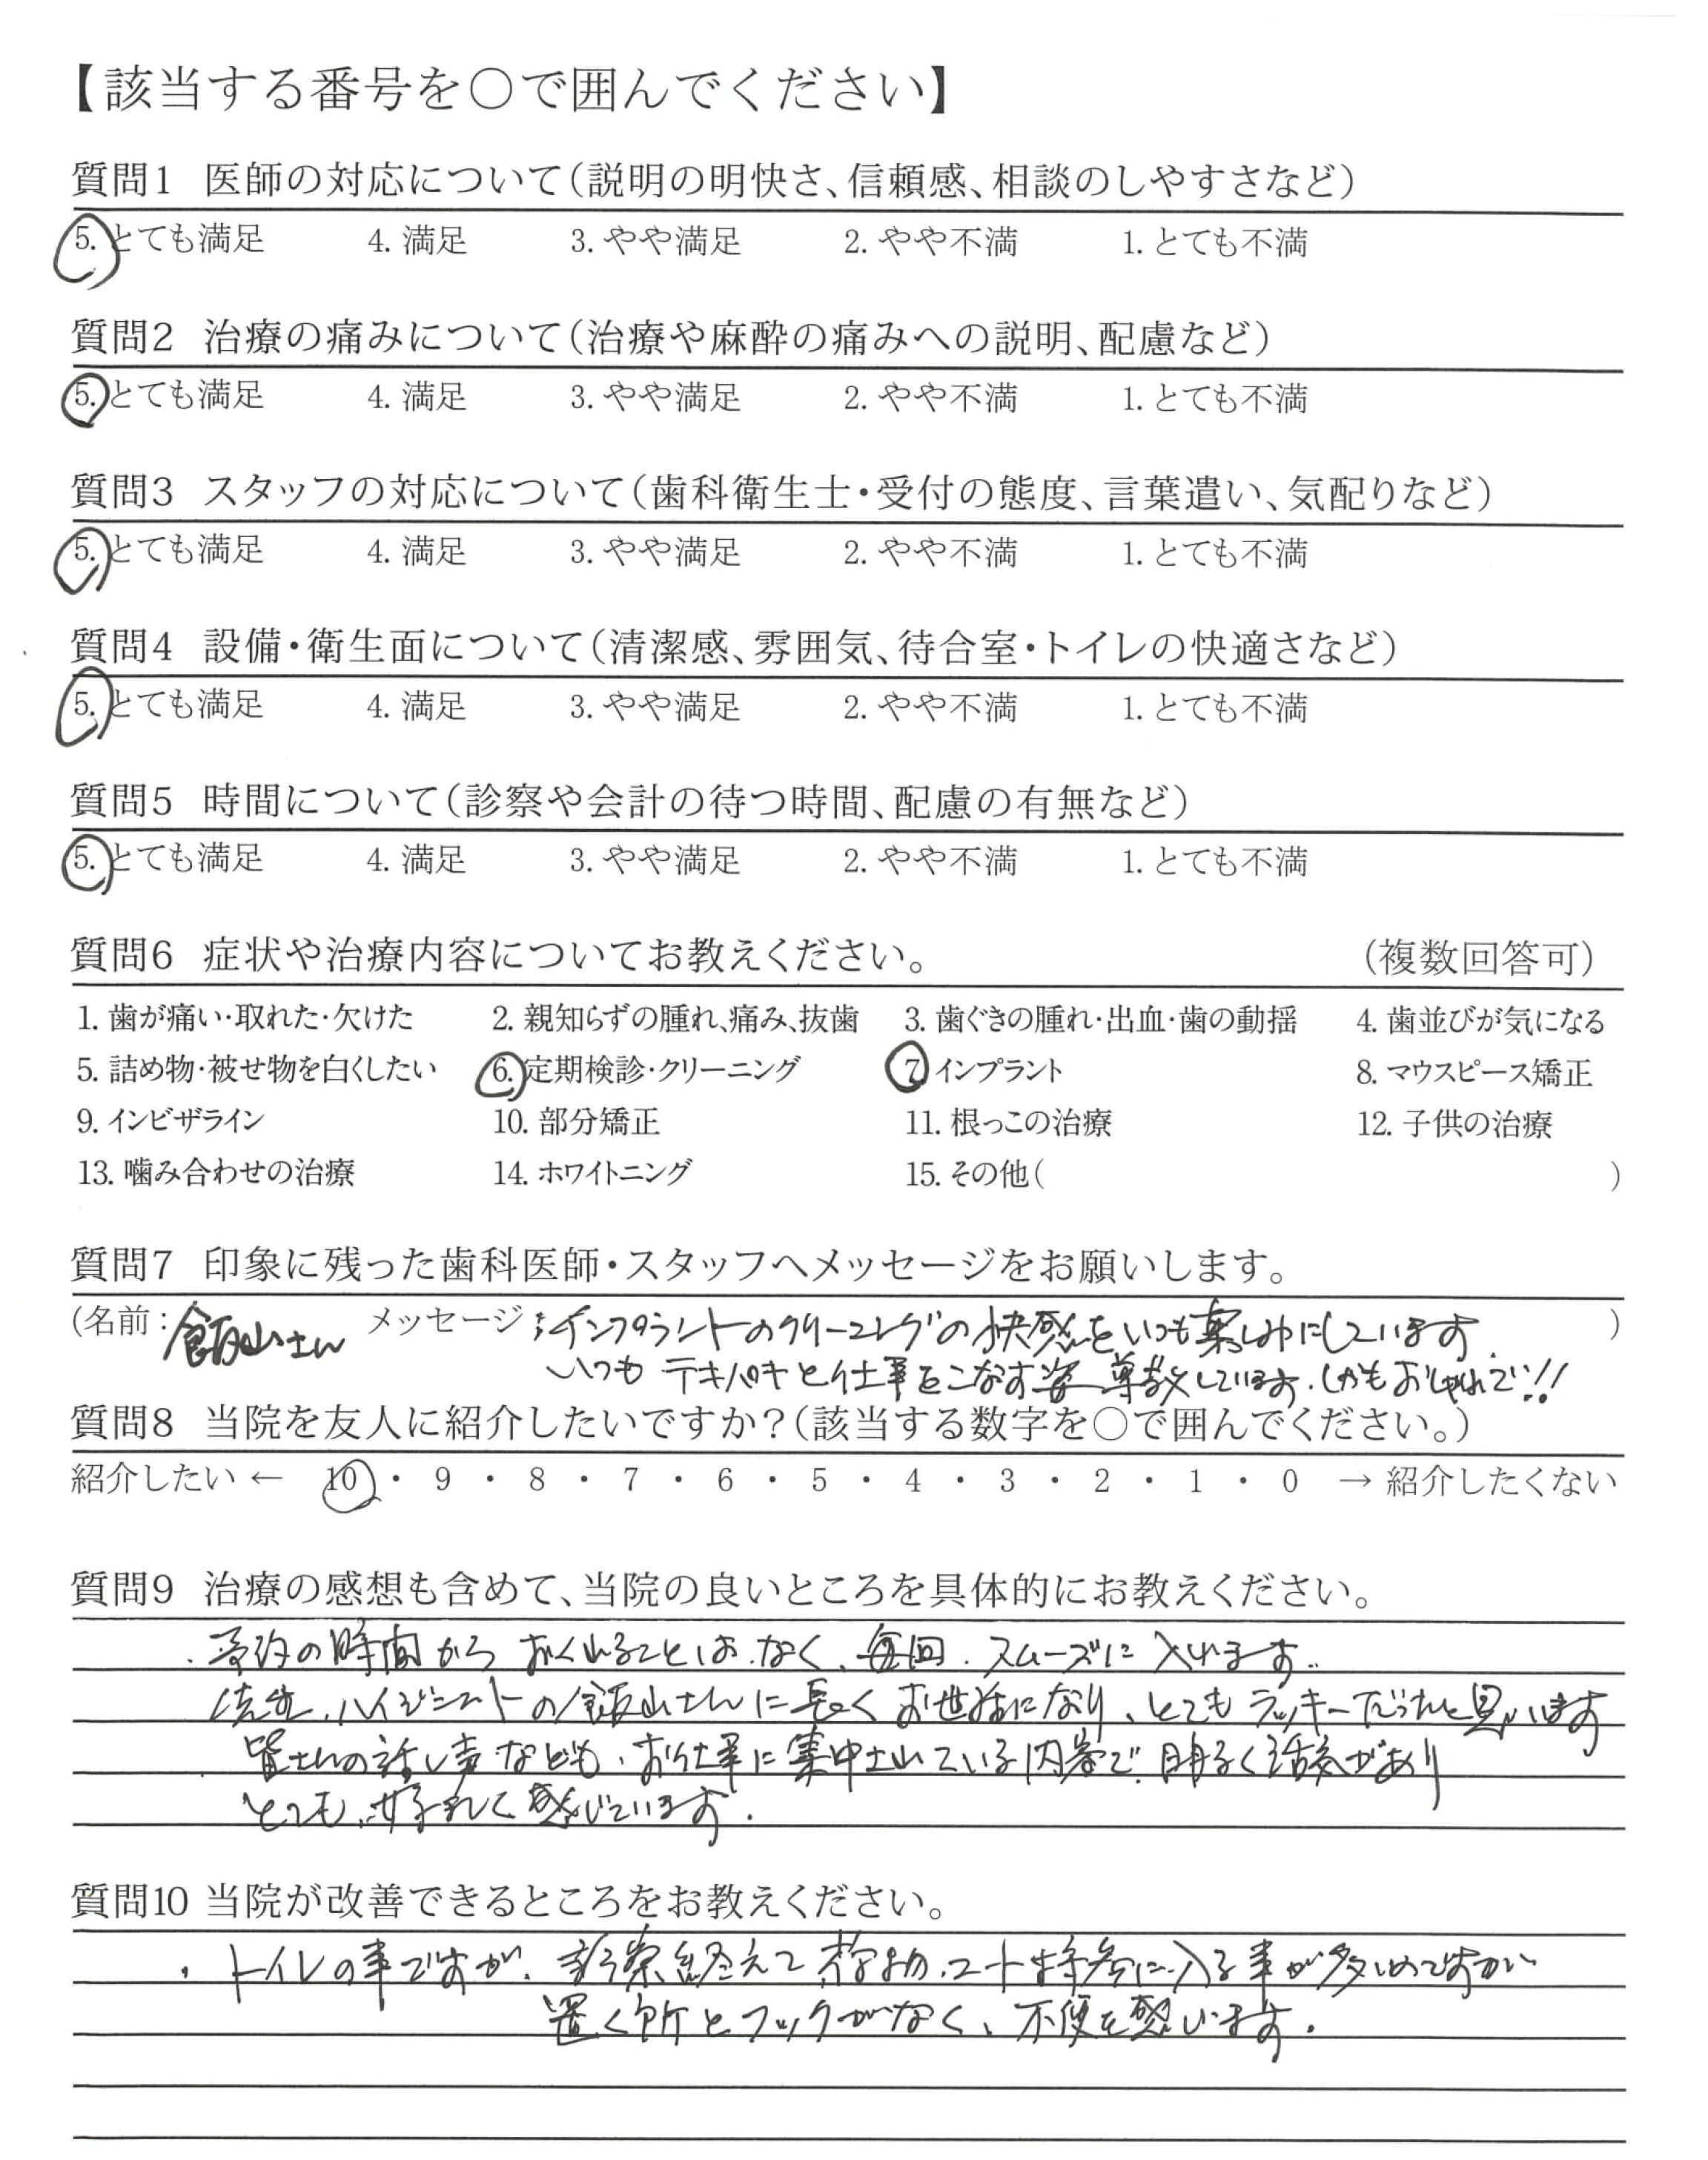 【該当する番号を○で囲んでください】
質問1 医師の対応について（説明の明快さ、信頼感、相談のしやすさなど）
5. とても満足 4. 満足 3. やや満足 2. やや不満 1. とても不満
質問2 治療の痛みについて（治療や麻酔の痛みへの説明、配慮など）
5. とても満足 4. 満足 3. やや満足 2. やや不満 1. とても不満
質問3 スタッフの対応について（歯科衛生士・受付の態度、言葉遣い、気配りなど）
5. とても満足 4. 満足 3. やや満足 2. やや不満 1. とても不満
質問4 設備・衛生面について（清潔感、雰囲気、待合室・トイレの快適さなど）
5. とても満足 4. 満足 3. やや満足 2. やや不満 1. とても不満
質問5 時間について（診察や会計の待つ時間、配慮の有無など）
5. とても満足 4. 満足 3. やや満足 2. やや不満 1. とても不満
質問6 症状や治療内容についてお教えください。 （複数回答可）
1. 歯が痛い・取れた・欠けた 2. 親知らずの腫れ、痛み、抜歯 3. 歯ぐきの腫れ・出血・歯の動揺 4. 歯並びが気になる
5. 詰め物・被せ物を白くしたい 6. 定期検診・クリーニング 7. インプラント 8. マウスピース矯正
9. インビザライン 10. 部分矯正 11. 根っこの治療 12. 子供の治療
13. 噛み合わせの治療 14. ホワイトニング 15. その他（ ）
質問7 印象に残った歯科医師・スタッフへメッセージをお願いします。
(名前：飯山さん メッセージ：インプラントのクリーニングの快感をいつも楽しみにしています. )
いつもテキパキと仕事をこなす姿 尊敬しています.しかもおしゃれで!!
質問8 当院を友人に紹介したいですか？（該当する数字を○で囲んでください。）
紹介したい ← 10 ・ 9 ・ 8 ・ 7 ・ 6 ・ 5 ・ 4 ・ 3 ・ 2 ・ 1 ・ 0 → 紹介したくない
質問9 治療の感想も含めて、当院の良いところを具体的にお教えください。
・予約の時間から おくれることはなく、毎回、スムーズに入れます.
先生、ハイジニストの飯山さんに長くお世話になり、とてもラッキーだったと思います
皆さんの話し声なども、お仕事に集中されている内容で、明るく活気があり
とても、好ましく感じています.
質問10 当院が改善できるところをお教えください。
・トイレの事ですが、診察終えて荷物、コート持参に入る事が多いのですが
置く所とフックがなく、不便を感じます.